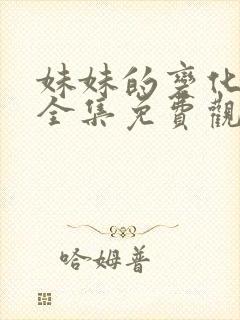 妹妹的變化
全集免費觀
哈姆普